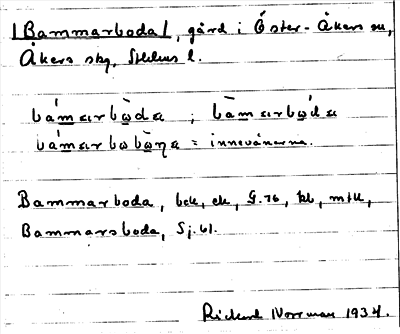 Bammarboda, gård i Öster-Åkers sn,
Åkers skg, Sthlms l.
bámarbòda ; bàmarbóda
bámarbobòŋa = innevånarna.
Bammarboda, bck, ek, G.76, kb, mtk,
Bammarsboda, Sj. 61.
Rickard Norrman 1934.